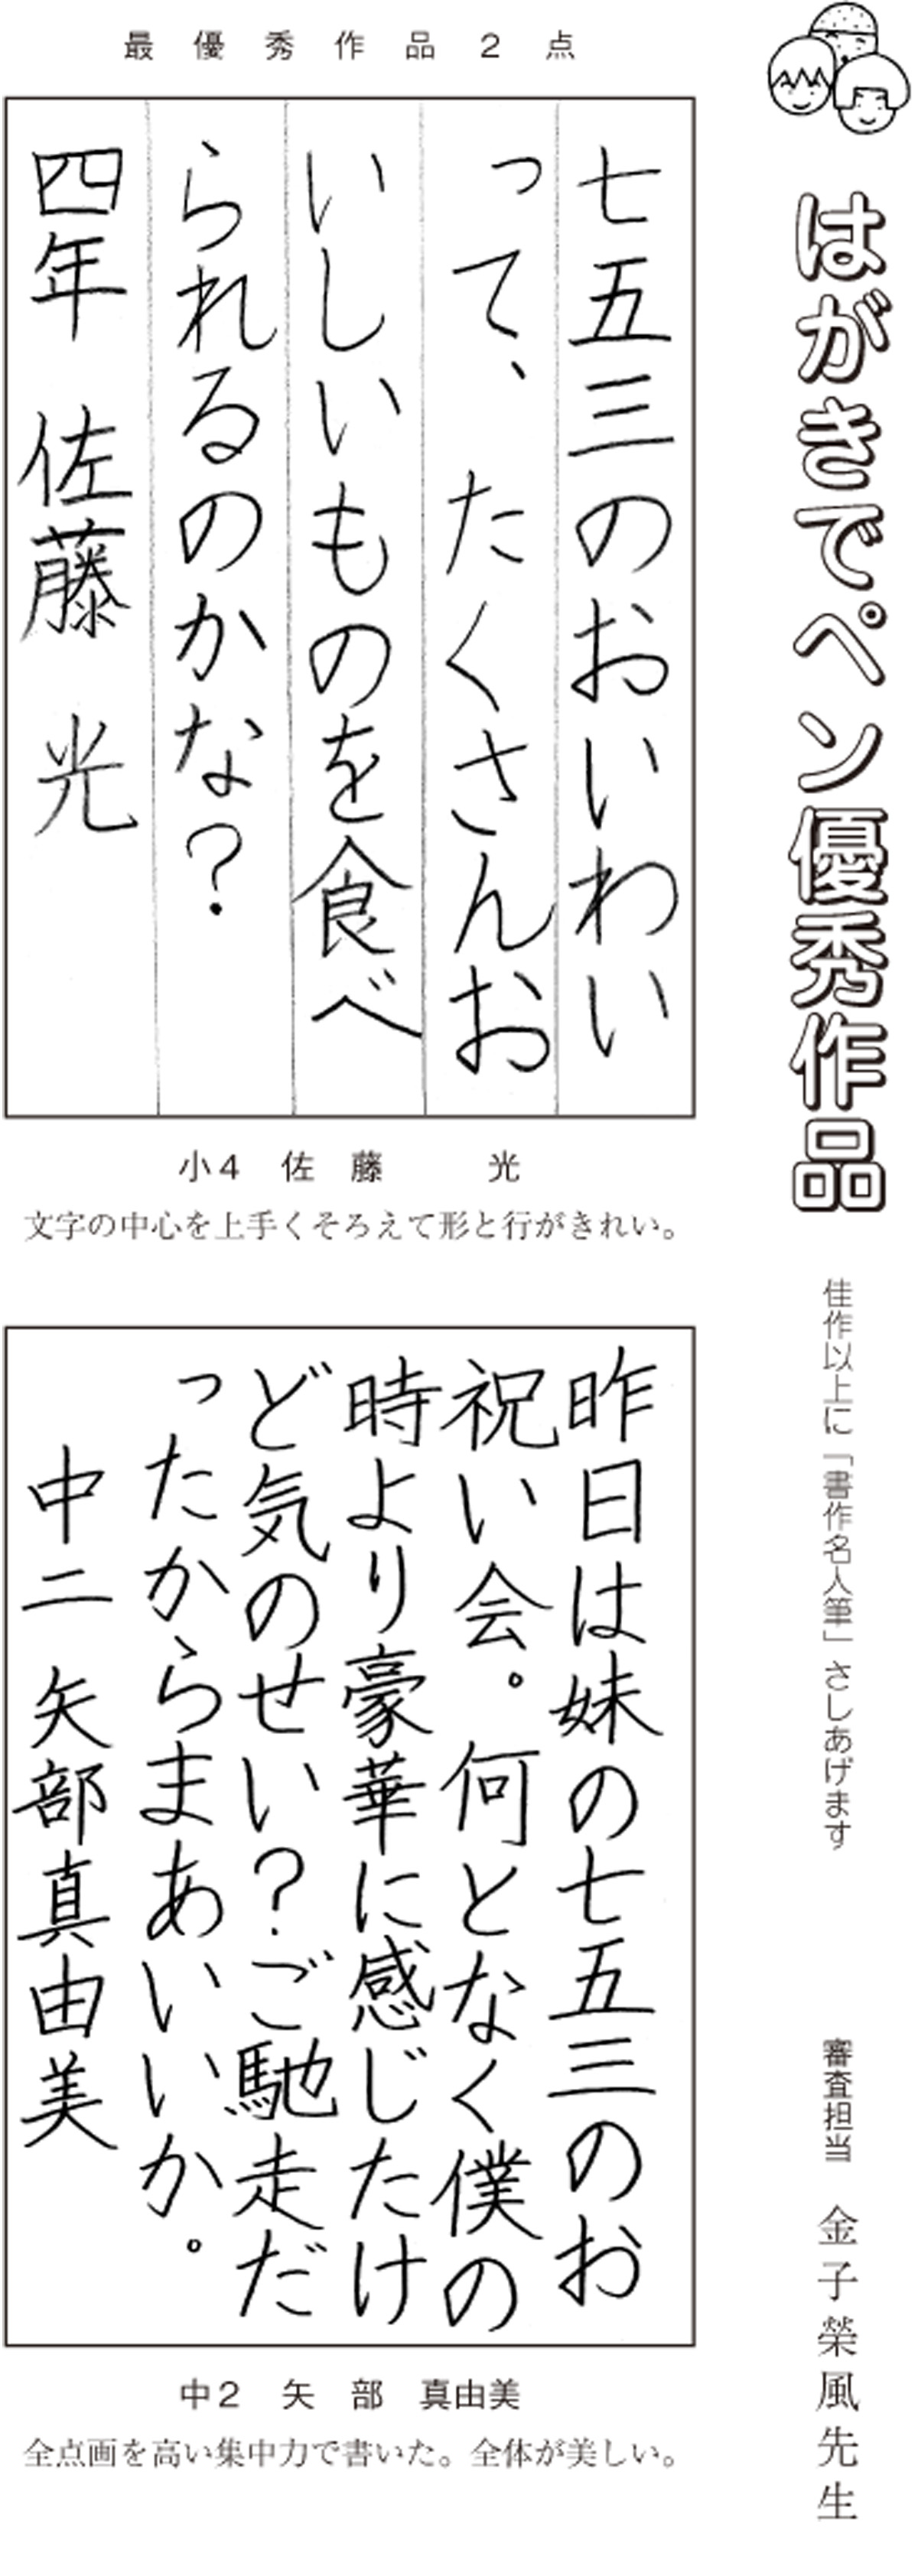 はがきでペン優秀作品
佳作以上に「書作名人筆」さしあげます
審査担当 金子榮風先生
最優秀作品2点
七五三のおいわい
って、たくさんお
いしいものを食べ
られるのかな？
四年 佐藤 光
小4 佐藤 光
文字の中心を上手くそろえて形と行がきれい。
昨日は妹の七五三のお
祝い会。何となく僕の
時より豪華に感じたけ
ど気のせい？ご馳走だ
ったからまあいいか。
中二 矢部真由美
中2 矢部 真由美
全点画を高い集中力で書いた。全体が美しい。